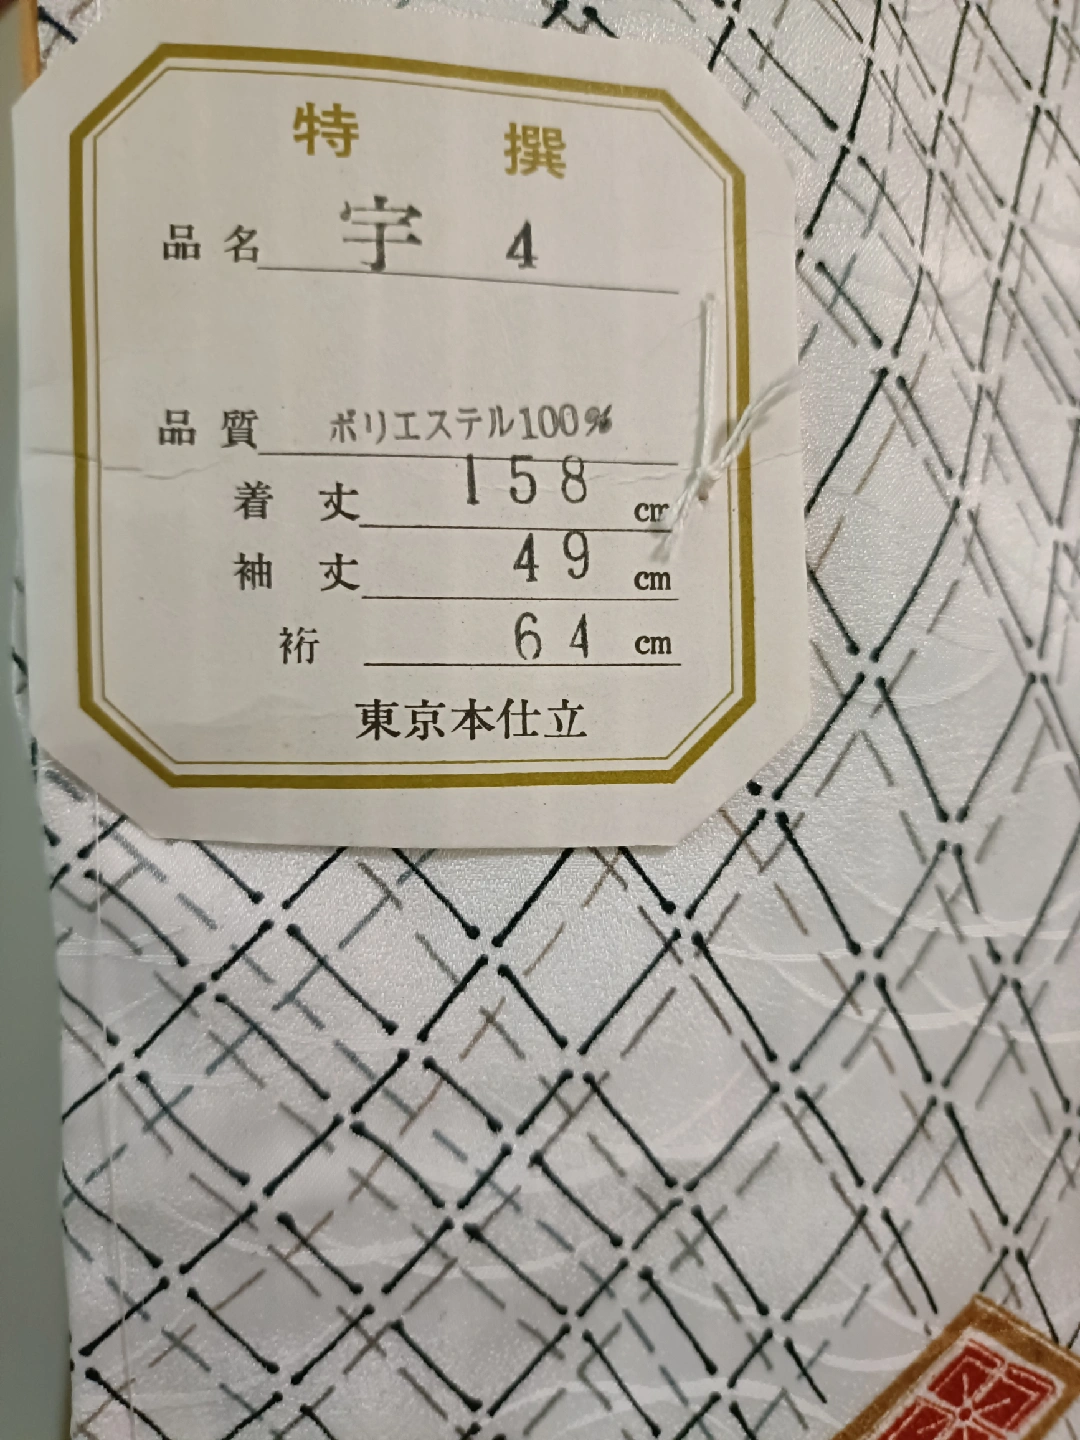 特 撰
品名 宇 4
品質 ポリエステル100%
着丈 158 cm
袖丈 49 cm
裄 64 cm
東京本仕立